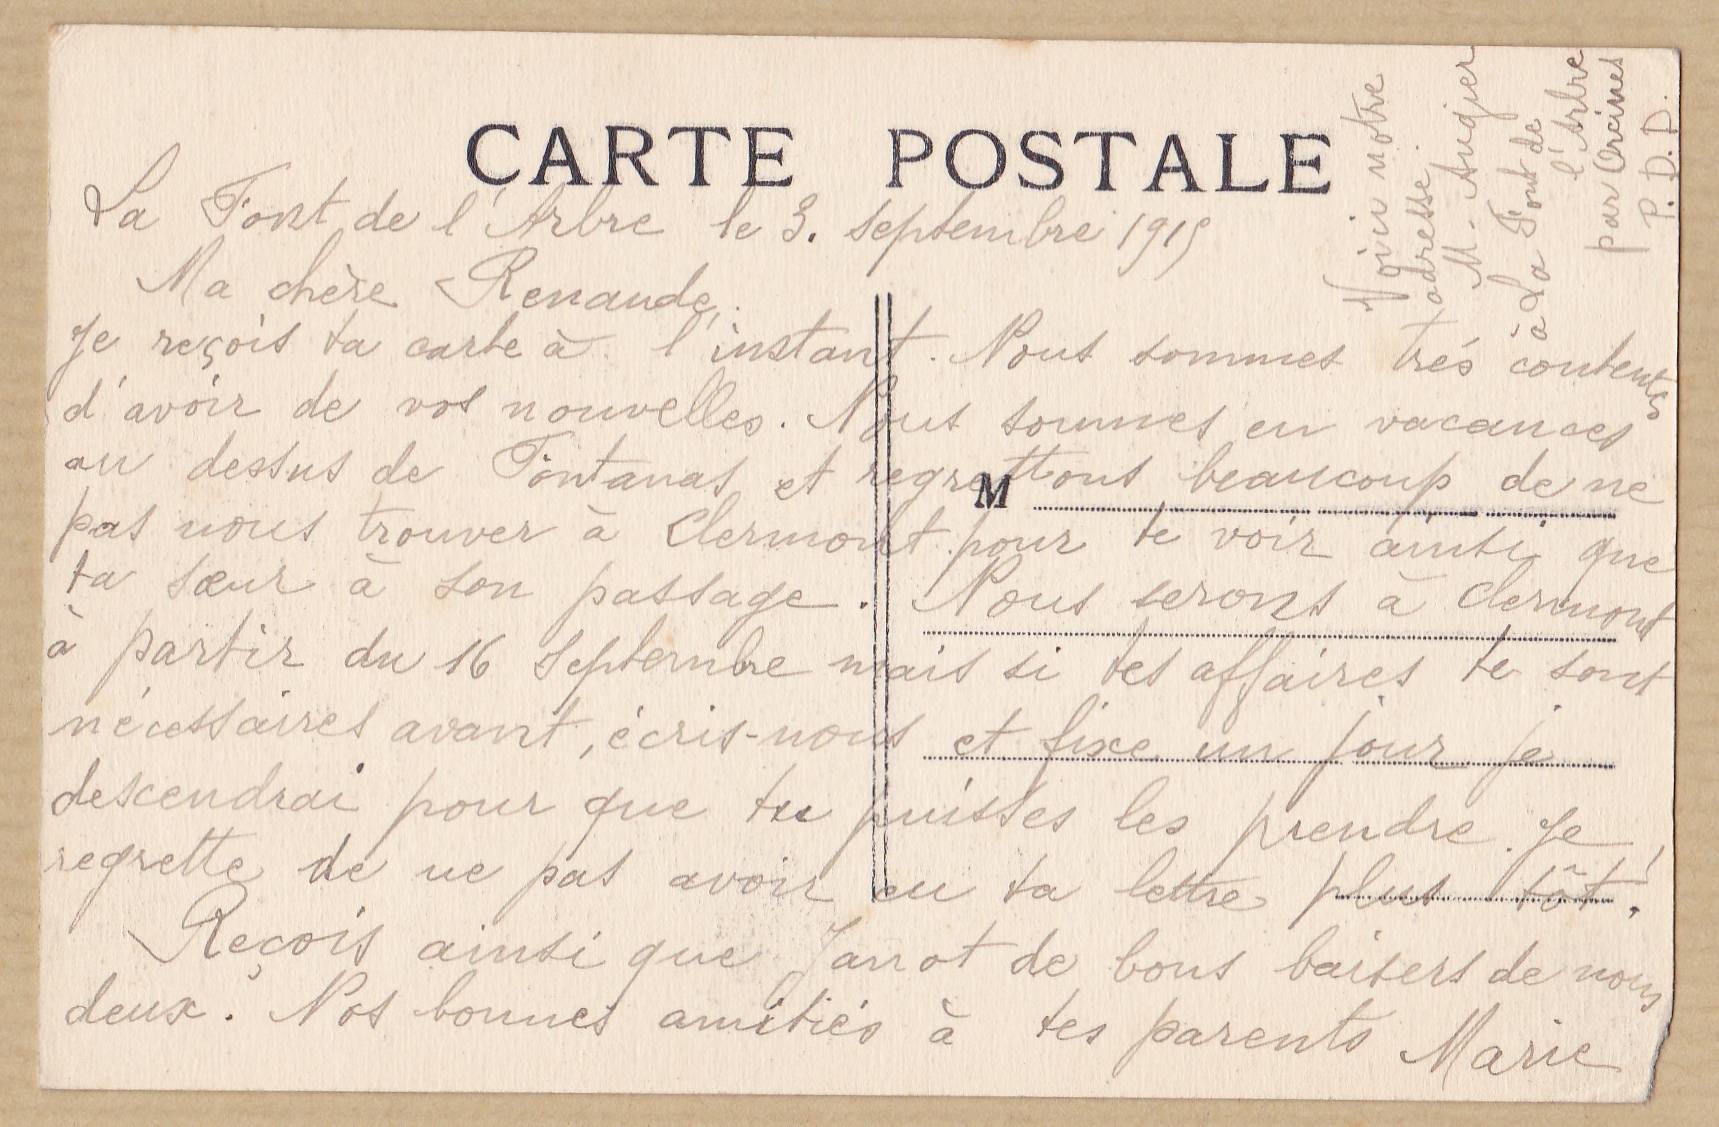 CARTE POSTALE
La Font de l'Arbre le 3. septembre 1915
Ma chère Renaude,
Je reçois ta carte à l'instant. Nous sommes trés contentes
d'avoir de vos nouvelles. Nous sommes en vacances
au dessus de Fontanas et regrettons beaucoup de ne
M
pas nous trouver à Clermont pour te voir ainsi que
ta sœur à son passage. Nous serons à Clermont
à partir du 16 Septembre mais si tes affaires te sont
nécessaires avant, écris-nous et fixe un jour je
descendrai pour que tu puisses les prendre. Je
regrette de ne pas avoir eu ta lettre plus tôt!
Reçois ainsi que Janot de bons baisers de nous
deux. Nos bonnes amitiés à tes parents Marie
Voici notre
adresse.
M. Augier
à La Font de
l'Arbre
par Orcines
P. D. D.